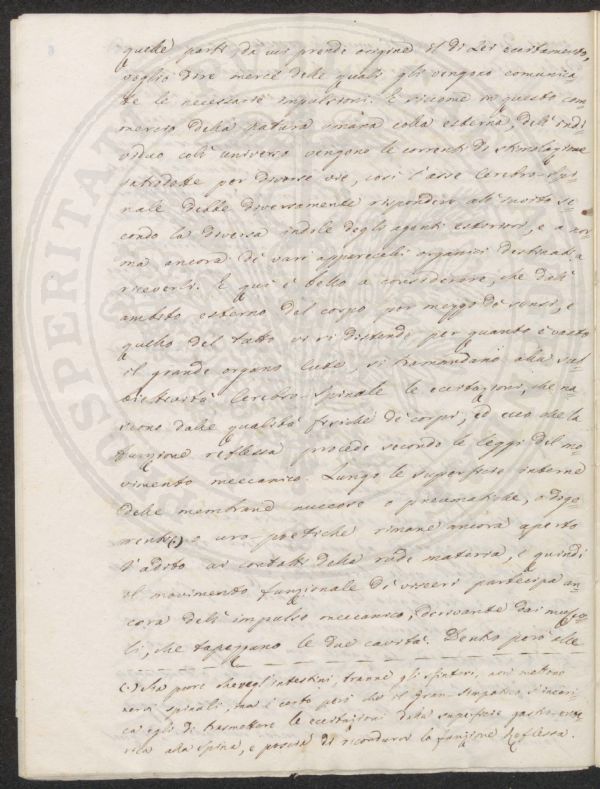 quelle parti, da cui prende origine il di Lei eccitamento,
voglio dire mercè delle quali gli vengono comunica
te le necessarie impulsioni. E siccome in questo com
mercio della natura umana colla esterna, dell'indi-
viduo coll'universo vengono le correnti di stimolazione
tradotte per diverse vie, così l'asse Cerebro-Spi-
nale debbe diversamente rispondere all'invito se-
condo la diversa indole degli agenti esteriori, e a nor-
ma ancora de' varj apparecchi organici destinati a
riceverli. E qui è bello a considerare, che dall'
ambito esterno del corpo per mezzo de' sensi, e
quello del tatto vi si distende per quanto è vasto
il grande organo Cute, si tramandano alla
Cerebro-Spinale le eccitazioni, che na-
scono dalle qualità fisiche de' corpi, ed ecco che la
funzione reflessa procede secondo le leggi del mo-
vimento meccanico. Lungo le superficie interne
delle membrane muccose o pneumatiche, o dige-
renti (.) o uro-poetiche rimane ancora aperto
l'adito ai contatti della rude materia, e quindi
il movimento funzionale de' visceri partecipa an-
cora dell'impulso meccanico, derivante dai musco-
li, che tapezzano le due cavità. Dentro però alle
(.) che negl'intestini, tranne gli sfinteri, non mettono
nervi spinali, ma è certo però che il gran Simpatico s'incari-
ca egli di trasmettere le eccitazioni della superficie gastro-ente-
rica alla spina, e poscia di ricondurvi la funzione reflessa.